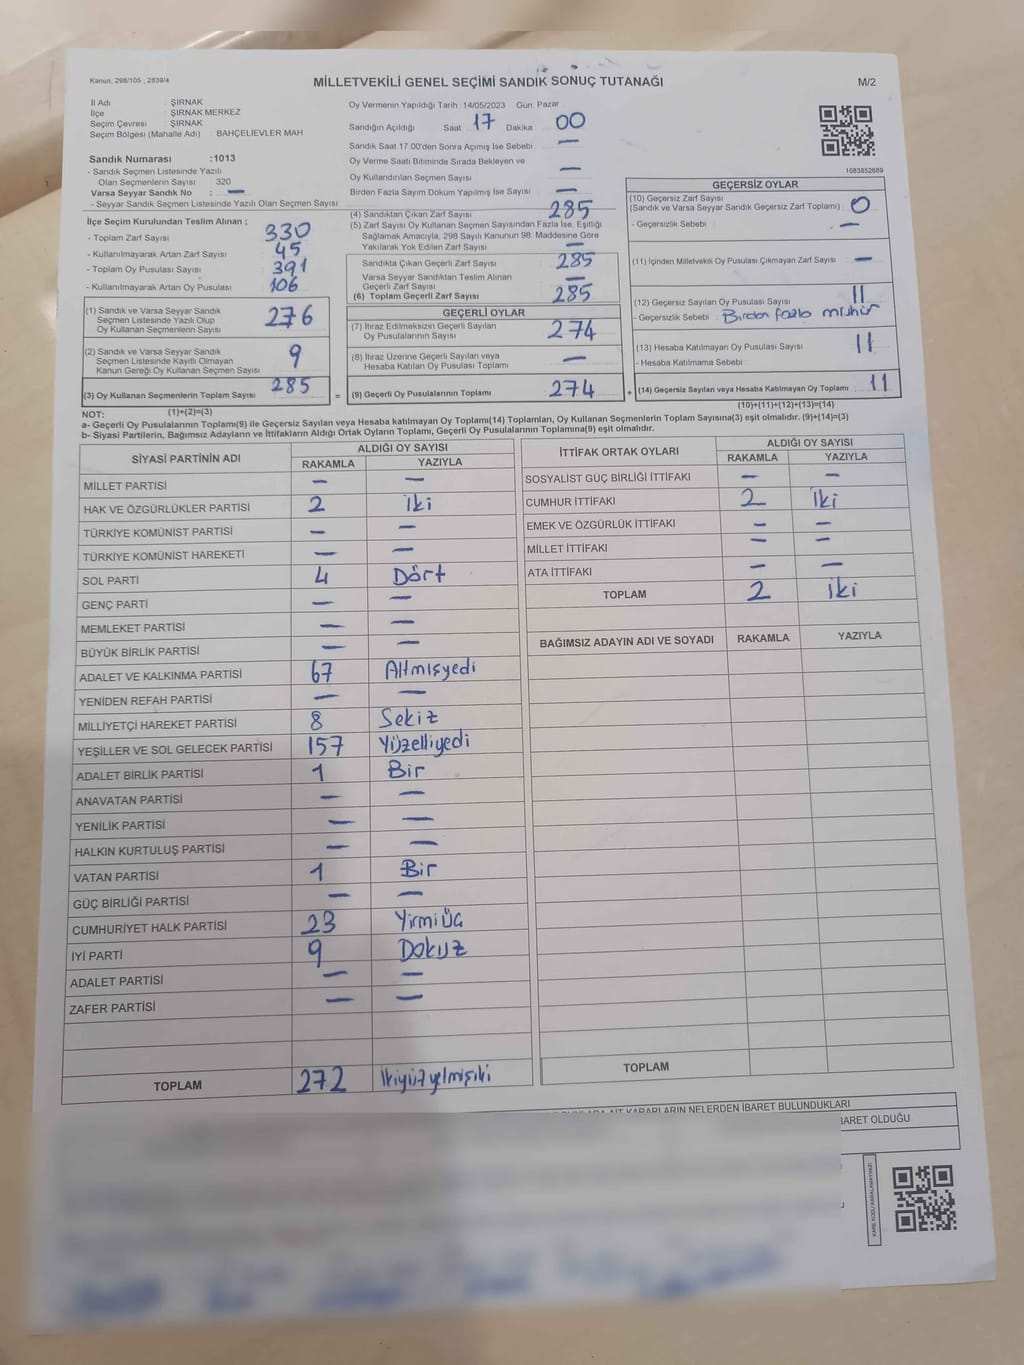 Kanun, 298/105 , 2839/4
MİLLETVEKİLİ GENEL SEÇİMİ SANDIK SONUÇ TUTANAĞI
M/2
İl Adı : ŞIRNAK
İlçe : ŞIRNAK MERKEZ
Seçim Çevresi : ŞIRNAK
Seçim Bölgesi (Mahalle Adı) : BAHÇELİEVLER MAH
Sandık Numarası :1013
- Sandık Seçmen Listesinde Yazılı
Olan Seçmenlerin Sayısı : 320
Varsa Seyyar Sandık No : —
- Seyyar Sandık Seçmen Listesinde Yazılı Olan Seçmen Sayısı
Oy Vermenin Yapıldığı Tarih 14/05/2023 Gün Pazar
Sandığın Açıldığı Saat 17 Dakika 00
Sandık Saat 17:00'den Sonra Açımış İse Sebebi —
Oy Verme Saati Bitiminde Sırada Bekleyen ve
Oy Kullandırılan Seçmen Sayısı —
Birden Fazla Sayım Döküm Yapılmış İse Sayısı —
1083852689
İlçe Seçim Kurulundan Teslim Alınan ;
- Toplam Zarf Sayısı 330
- Kullanılmayarak Artan Zarf Sayısı 45
- Toplam Oy Pusulası Sayısı 391
- Kullanılmayarak Artan Oy Pusulası 106
(1) Sandık ve Varsa Seyyar Sandık
Seçmen Listesinde Yazılı Olup
Oy Kullanan Seçmenlerin Sayısı 276
(2) Sandık ve Varsa Seyyar Sandık
Seçmen Listesinde Kayıtlı Olmayan
Kanun Gereği Oy Kullanan Seçmen Sayısı 9
(3) Oy Kullanan Seçmenlerin Toplam Sayısı 285
(4) Sandıktan Çıkan Zarf Sayısı 285
(5) Zarf Sayısı Oy Kullanan Seçmen Sayısından Fazla İse, Eşitliği
Sağlamak Amacıyla, 298 Sayılı Kanunun 98. Maddesine Göre
Yakılarak Yok Edilen Zarf Sayısı —
Sandıkta Çıkan Geçerli Zarf Sayısı 285
Varsa Seyyar Sandıktan Teslim Alınan
Geçerli Zarf Sayısı —
(6) Toplam Geçerli Zarf Sayısı 285
GEÇERLİ OYLAR
(7) İtiraz Edilmeksizin Geçerli Sayılan
Oy Pusulalarının Sayısı 274
(8) İtiraz Üzerine Geçerli Sayılan veya
Hesaba Katılan Oy Pusulası Toplamı —
= (9) Geçerli Oy Pusulalarının Toplamı 274
GEÇERSİZ OYLAR
(10) Geçersiz Zarf Sayısı
(Sandık ve Varsa Seyyar Sandık Geçersiz Zarf Toplamı) 0
- Geçersizlik Sebebi : —
(11) İçinden Milletvekili Oy Pusulası Çıkmayan Zarf Sayısı —
(12) Geçersiz Sayılan Oy Pusulası Sayısı 11
- Geçersizlik Sebebi : Birden fazla mühür
(13) Hesaba Katılmayan Oy Pusulası Sayısı 11
- Hesaba Katılmama Sebebi :
+ (14) Geçersiz Sayılan veya Hesaba Katılmayan Oy Toplamı 11
NOT: (1)+(2)=(3)
(10)+(11)+(12)+(13)=(14)
a- Geçerli Oy Pusulalarının Toplamı(9) ile Geçersiz Sayılan veya Hesaba katılmayan Oy Toplamı(14) Toplamları, Oy Kullanan Seçmenlerin Toplam Sayısına(3) eşit olmalıdır. (9)+(14)=(3)
b- Siyasi Partilerin, Bağımsız Adayların ve İttifakların Aldığı Ortak Oyların Toplamı, Geçerli Oy Pusulalarının Toplamına(9) eşit olmalıdır.
SİYASİ PARTİNİN ADI ALDIĞI OY SAYISI
RAKAMLA YAZIYLA
MİLLET PARTİSİ — —
HAK VE ÖZGÜRLÜKLER PARTİSİ 2 İki
TÜRKİYE KOMÜNİST PARTİSİ — —
TÜRKİYE KOMÜNİST HAREKETİ — —
SOL PARTİ 4 Dört
GENÇ PARTİ — —
MEMLEKET PARTİSİ — —
BÜYÜK BİRLİK PARTİSİ — —
ADALET VE KALKINMA PARTİSİ 67 Altmışyedi
YENİDEN REFAH PARTİSİ — —
MİLLİYETÇİ HAREKET PARTİSİ 8 Sekiz
YEŞİLLER VE SOL GELECEK PARTİSİ 157 Yüzelliyedi
ADALET BİRLİK PARTİSİ 1 Bir
ANAVATAN PARTİSİ — —
YENİLİK PARTİSİ — —
HALKIN KURTULUŞ PARTİSİ — —
VATAN PARTİSİ 1 Bir
GÜÇ BİRLİĞİ PARTİSİ — —
CUMHURİYET HALK PARTİSİ 23 Yirmiüç
İYİ PARTİ 9 Dokuz
ADALET PARTİSİ — —
ZAFER PARTİSİ — —
TOPLAM 272 İkiyüzyetmişiki
İTTİFAK ORTAK OYLARI ALDIĞI OY SAYISI
RAKAMLA YAZIYLA
SOSYALİST GÜÇ BİRLİĞİ İTTİFAKI — —
CUMHUR İTTİFAKI 2 İki
EMEK VE ÖZGÜRLÜK İTTİFAKI — —
MİLLET İTTİFAKI — —
ATA İTTİFAKI — —
TOPLAM 2 iki
BAĞIMSIZ ADAYIN ADI VE SOYADI RAKAMLA YAZIYLA
TOPLAM
AİT KARARLARIN NELERDEN İBARET BULUNDUKLARI
İBARET OLDUĞU